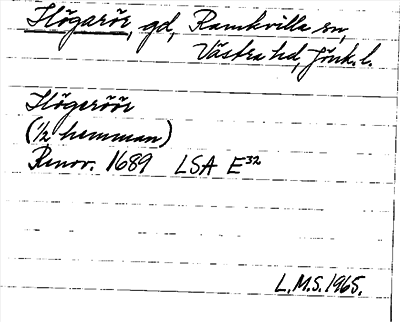 Högarör, gd, Ramkvilla sn,
Västra hd, Jönk. l.
Högeröör
(1/2 hemman)
Renov. 1689 LSA E32
L.M.S. 1965.